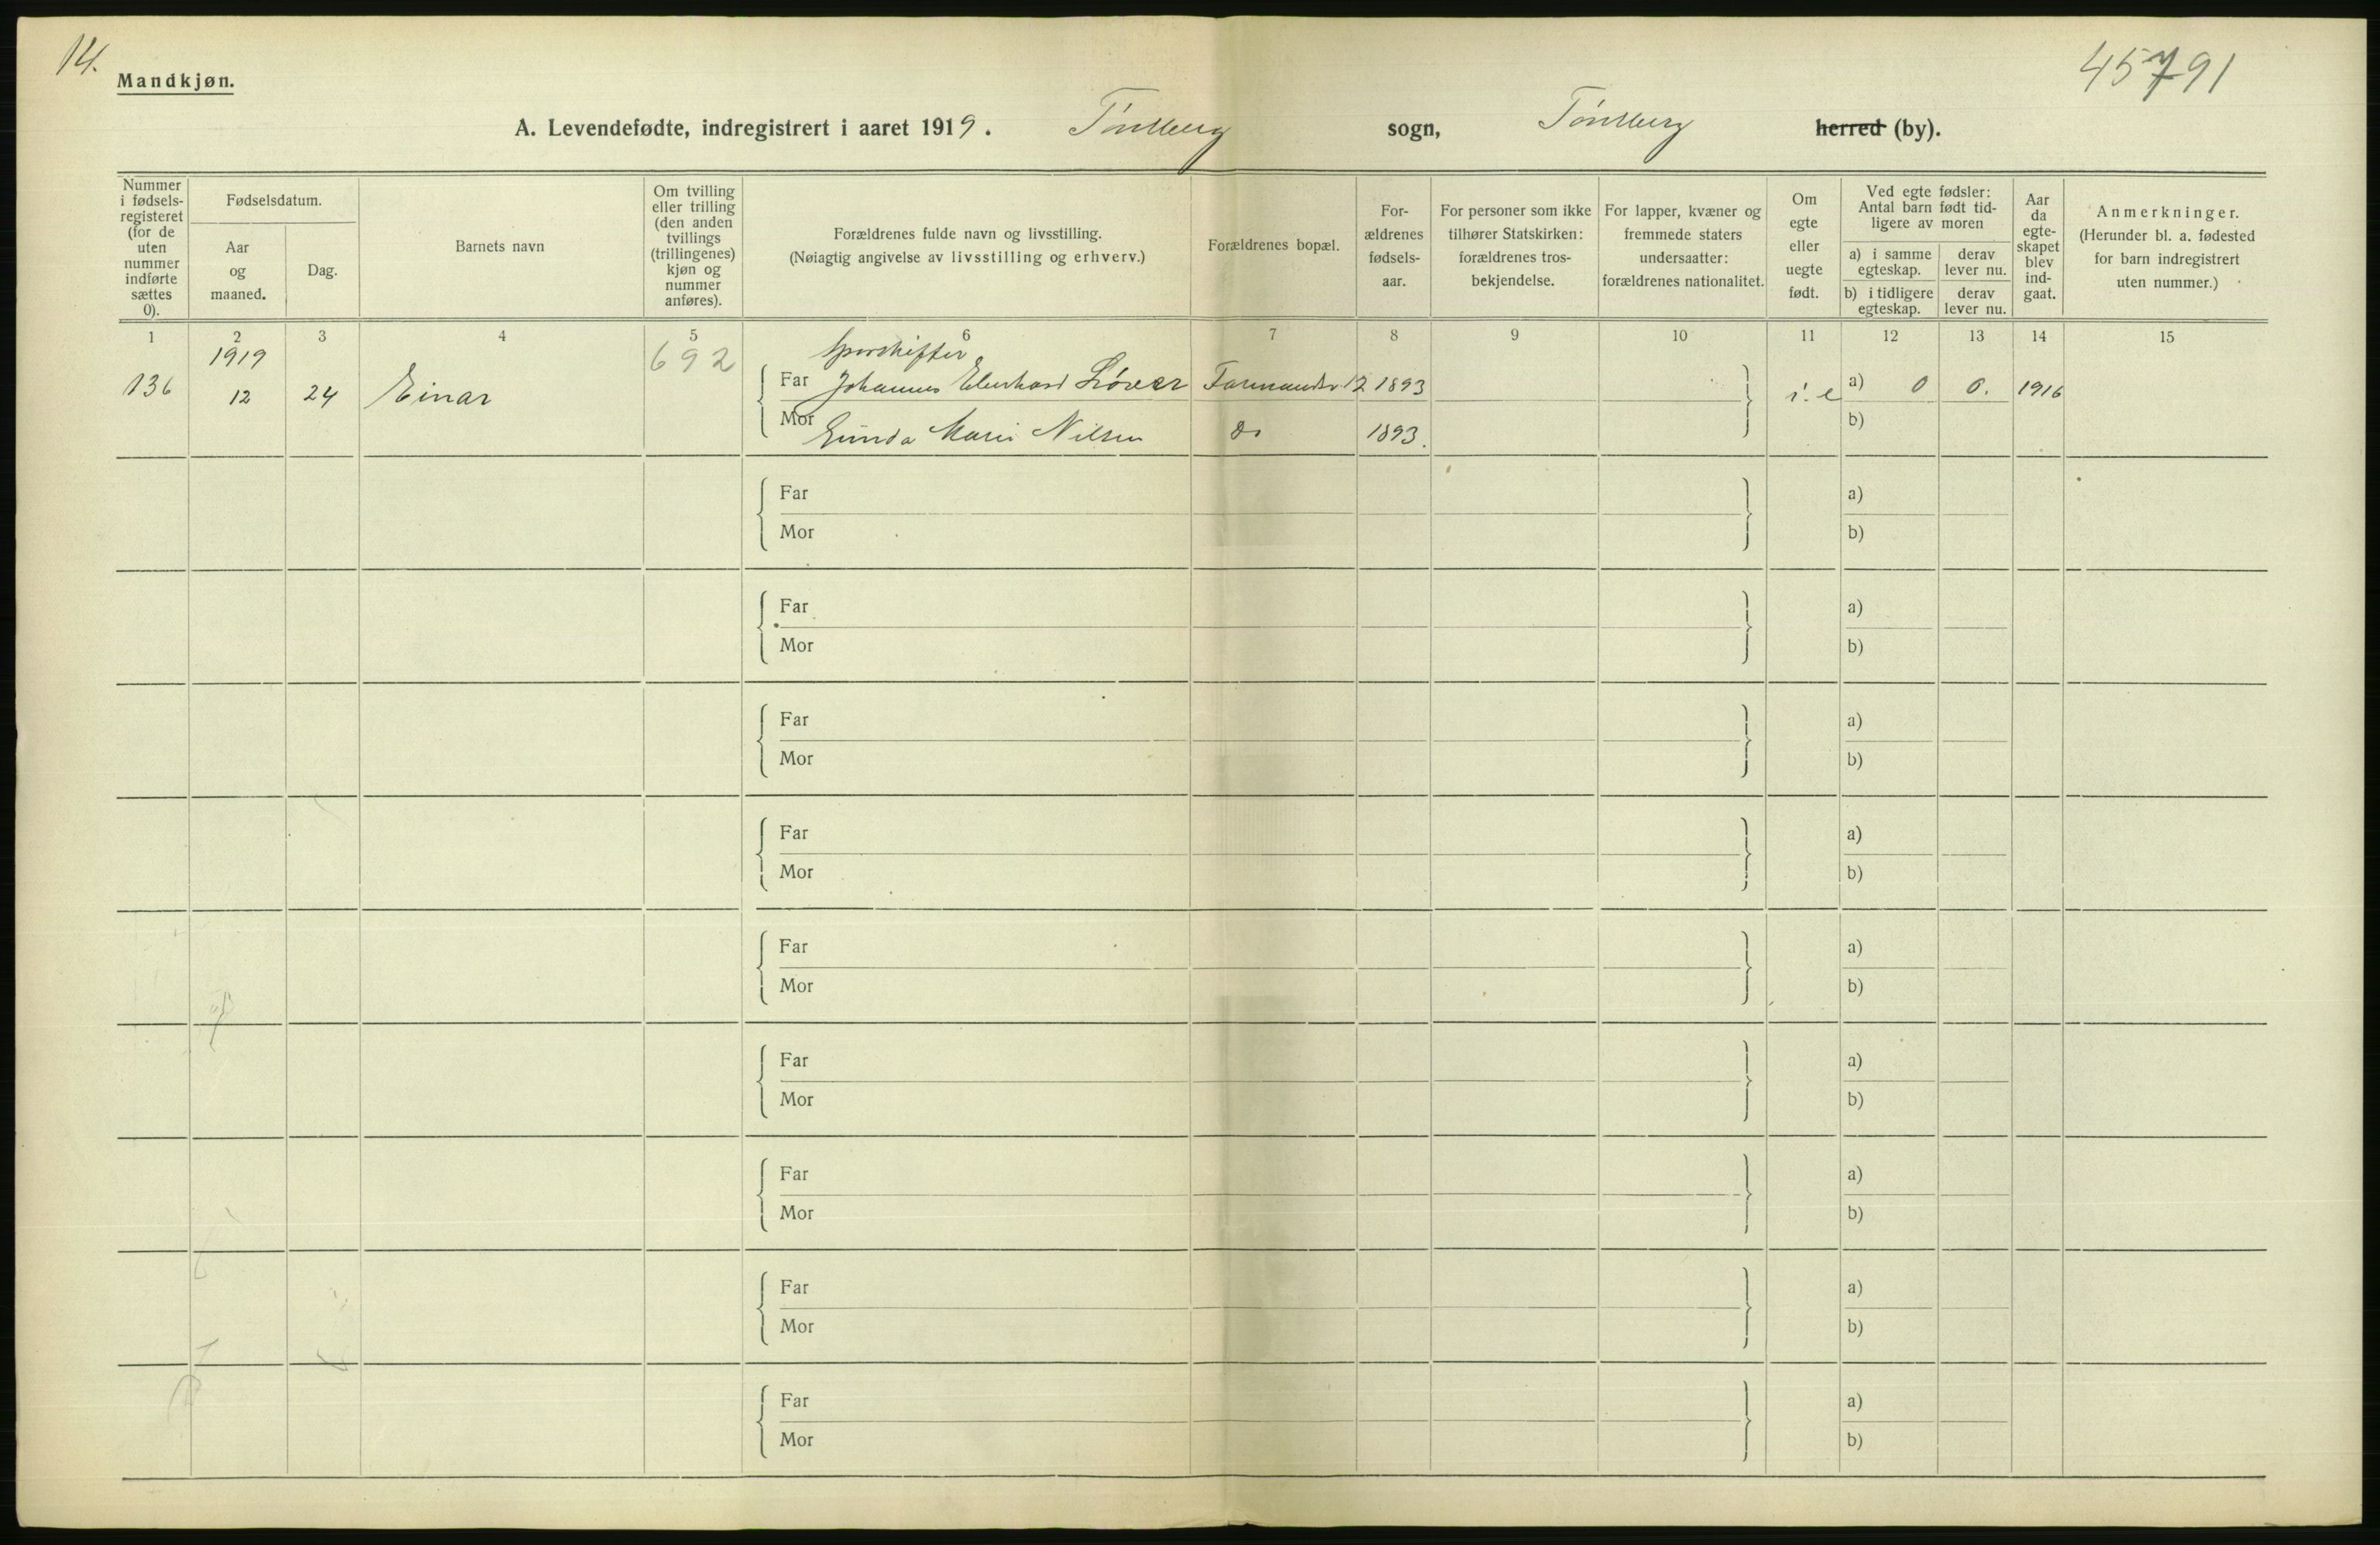 14.
45791
Mandkjøn.
A. Levendefødte, indregistrert i aaret 1919. Tønsberg sogn, Tønsberg herred (by).
Nummer i fødselsregisteret (for de uten nummer indførte sættes 0).
Fødselsdatum.
Aar og maaned.
Dag.
Barnets navn
Om tvilling eller trilling (den anden tvillings (trillingenes) kjøn og nummer anføres).
Forældrenes fulde navn og livsstilling.
(Nøiagtig angivelse av livsstilling og erhverv.)
Forældrenes bopæl.
Forældrenes fødselsaar.
For personer som ikke tilhører Statskirken: forældrenes trosbekjendelse.
For lapper, kvæner og fremmede staters undersaatter: forældrenes nationalitet.
Om egte eller uegte født.
Ved egte fødsler: Antal barn født tidligere av moren
a) i samme egteskap. derav lever nu.
b) i tidligere egteskap. derav lever nu.
Aar da egteskapet blev indgaat.
Anmerkninger.
(Herunder bl. a. fødested for barn indregistrert uten nummer.)
1 2 3 4 5 6 7 8 9 10 11 12 13 14 15
1919 692 Sporskifter
136 12 24 Einar Far Johannes 12 1893 e a) 0 0. 1916
Mor Marie Nilsen do 1893. b)
Far a)
Mor b)
Far a)
Mor b)
Far a)
Mor b)
Far a)
Mor b)
Far a)
Mor b)
Far a)
Mor b)
Far a)
Mor b)
Far a)
Mor b)
Far a)
Mor b)